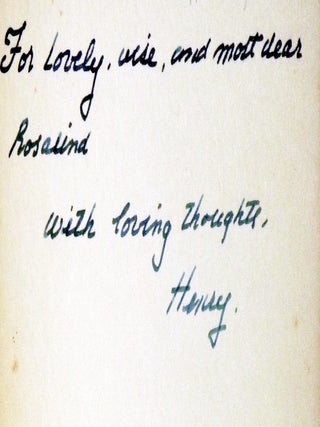 For lovely, wise, and most dear
Rosalind
with loving thoughts,
Henry.